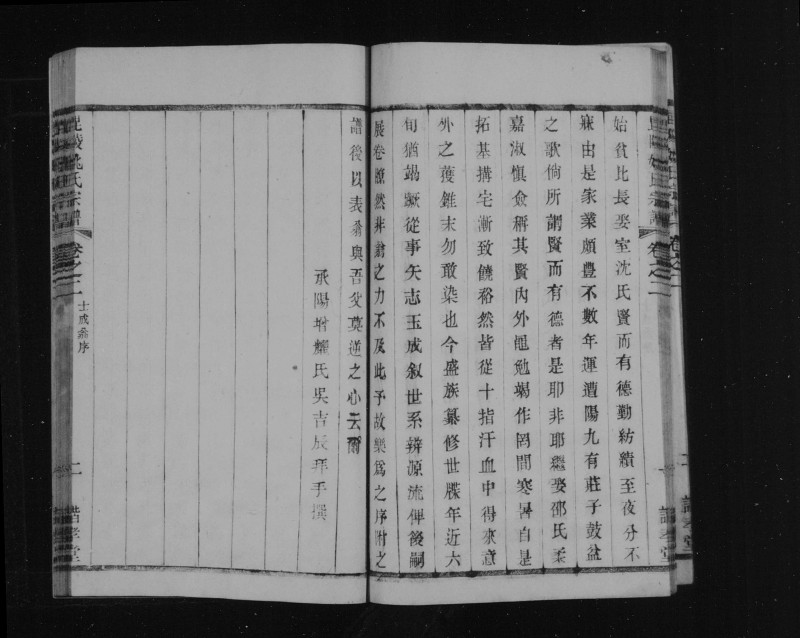 始貧比長娶室沈氏賢而有德勤紡績至夜分不
寐由是家業頗豊不數年運遭陽九有莊子鼓盆
之歌倘所謂賢而有德者是耶非耶繼娶邵氏柔
嘉淑慎僉稱其賢內外黽勉竭作罔間寒暑自是
拓基搆宅漸致饒裕然皆從十指汗血中得來意
外之獲錐末勿敢染也今盛族纂修世牒年近六
旬猶竭蹶從事矢志玉成叙世系辨源流俾後嗣
展卷瞭然非翁之力不及此予故樂爲之序附之
譜後以表翁與吾父莫逆之心云爾
氶陽增耀氏吳吉辰拜手撰
毘陵姚氏宗譜
卷之二
士成翁序
二
諧孝堂